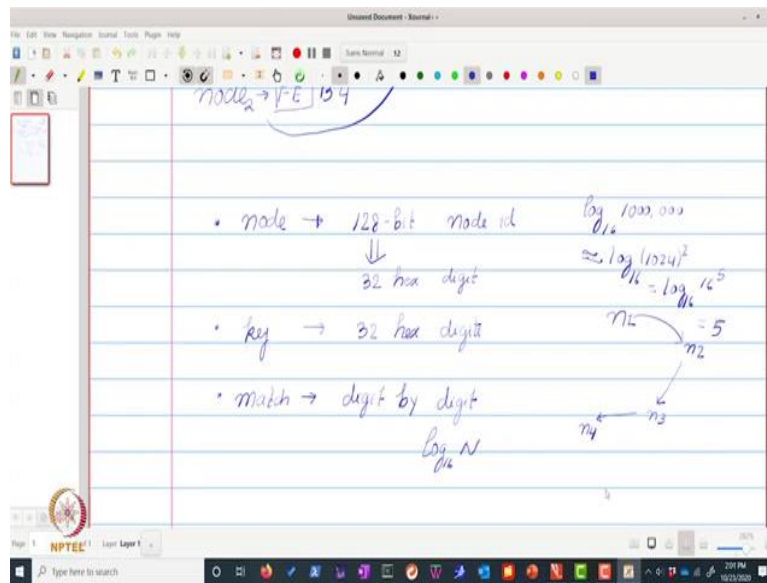 Unsaved Document - Xournal++
File Edit View Navigation Journal Tools Plugin Help
Sans Normal 12
node2 → F-E B4
• node → 128-bit node id
⇓
32 hex digit
• key → 32 hex digits
• match → digit by digit
log16 N
log16 1000,000
≈ log16 (1024)^2
= log16 16^5
= 5
n1
n2
n3
n4
Page 1
Layer Layer 1
NPTEL
Type here to search
2:01 PM
10/23/2020